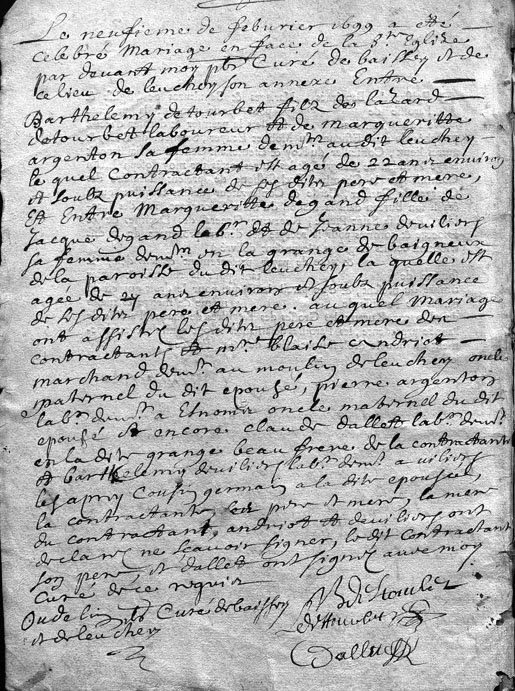 Le neufieme de feburier 1699 a esté
celebré Mariage en face de la Ste Eglize
par devant moy pbre Curé de baissey et de
ce lieu de leuchey son annexe Entre
Barthelemy detourbet filz de lazard
detourbet laboureur et de margueritte
argenton sa femme demts audit leuchey
le quel Contractant est agé de 22 ans environ
et soubz puissance de ses dits pere et mere,
Et Entre Margueritte degand fille de
Jacque degand labr et de Jeanne deuiliers
sa femme demts en la grange de baigneux
de la paroisse du dit leuchey, la quelle est
agee de 27 ans environ et soubz puissance
de ses dits pere et mere. au quel mariage
ont assistez les dits pere et mere des
contractants et mre blaise andriot
marchand demt au moulin de leuchey oncle
maternel du dit epousé, pierre argenton
labr demt a oncle maternel du dit
epousé et encore claude dallet labr demt
en la dite grange beau frere de la contractante
et barthelemy deuiliers labr demt a viliers
les cousin germain a la dite epousée,
la contractante, ses pere et mere, la mere
du contractant, andriot et deuiliers ont
declarez ne scavoir signer, le dit contractant
son pere et dallet ont signez avec moy
Curé de ce requis
Oudelin pbre Curé de baissey
et de leuchey